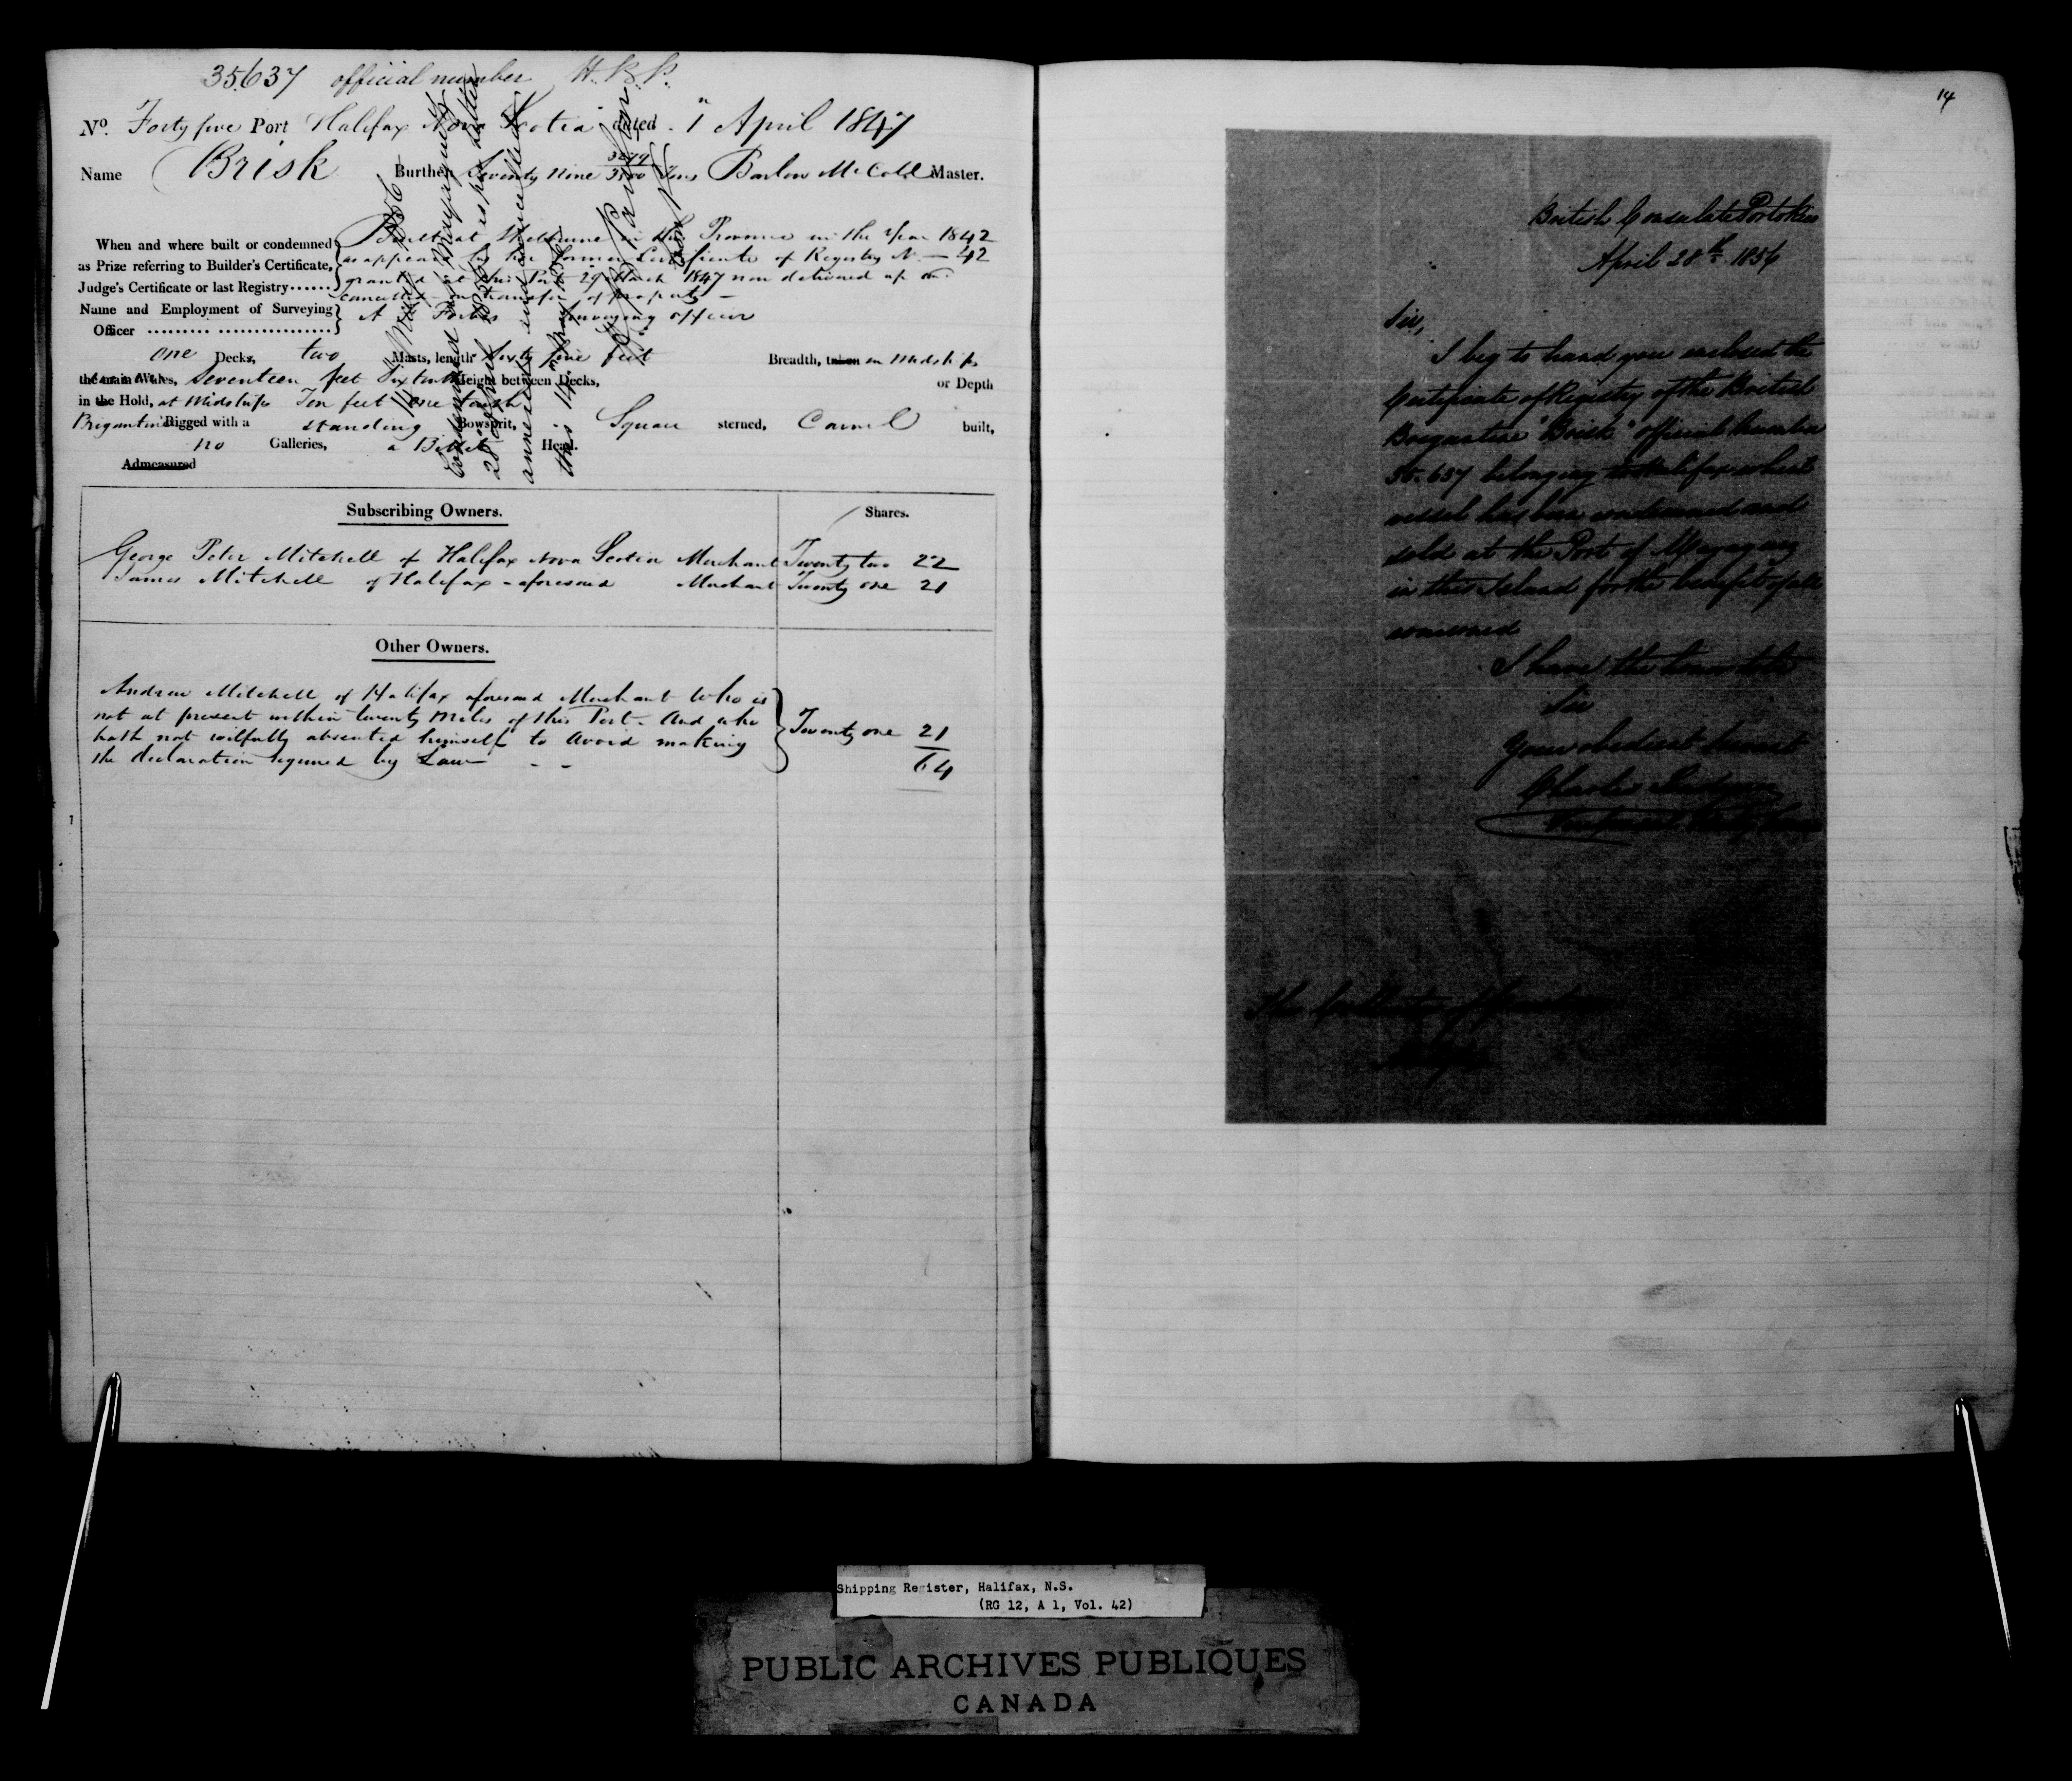 35.637 official number H.P.P.
No. Forty five Port Halifax Nova Scotia dated 1st April 1847
Name Brisk Burthen Seventy Nine Tons Barlow McColl Master.
When and where built or condemned
as Prize referring to Builder's Certificate,
Judge's Certificate or last Registry......
Built at in this Province in the Year 1842
as appears by her former Certificate of Registry No. 42
granted at this Port 29 March 1847 now delivered up &
cancelled on transfer of property
Name and Employment of Surveying
Officer
A Forbes Surveying officer
One Decks, two Masts, length Sixty five feet Breadth, taken in Midships
the main Wales, Seventeen feet Six tenths Height between Decks, or Depth
in the Hold, at Midships Ten feet one tenth
Brigantine Rigged with a standing Bowsprit, Square sterned, Carvel built,
no Galleries, a Billet Head.
Admeasured
this 14th May 1856
Subscribing Owners. Shares.
George Peter Mitchell of Halifax Nova Scotia Merchant Twenty two 22
James Mitchell of Halifax aforesaid Merchant Twenty one 21
Other Owners.
Andrew Mitchell of Halifax aforesaid Merchant who is
not at present within twenty Miles of this Port. And who
hath not wilfully absented himself to avoid making
the declaration required by Law
Twenty one 21
64
14
British Consulate Porto Rico
April 28th 1856
Sir,
I beg to hand you enclosed the
Certificate of Registry of the British
Brigantine "Brisk" official number
35.637 belonging to Halifax which
vessel has been condemned and
sold at the Port of
in this Island for the benefit of all
concerned
I have the honor to be
Sir
Your obedient Servant
Charles
The Collector of Customs
Halifax
Shipping Register, Halifax, N.S.
(RG 12, A 1, Vol. 42)
PUBLIC ARCHIVES PUBLIQUES
CANADA